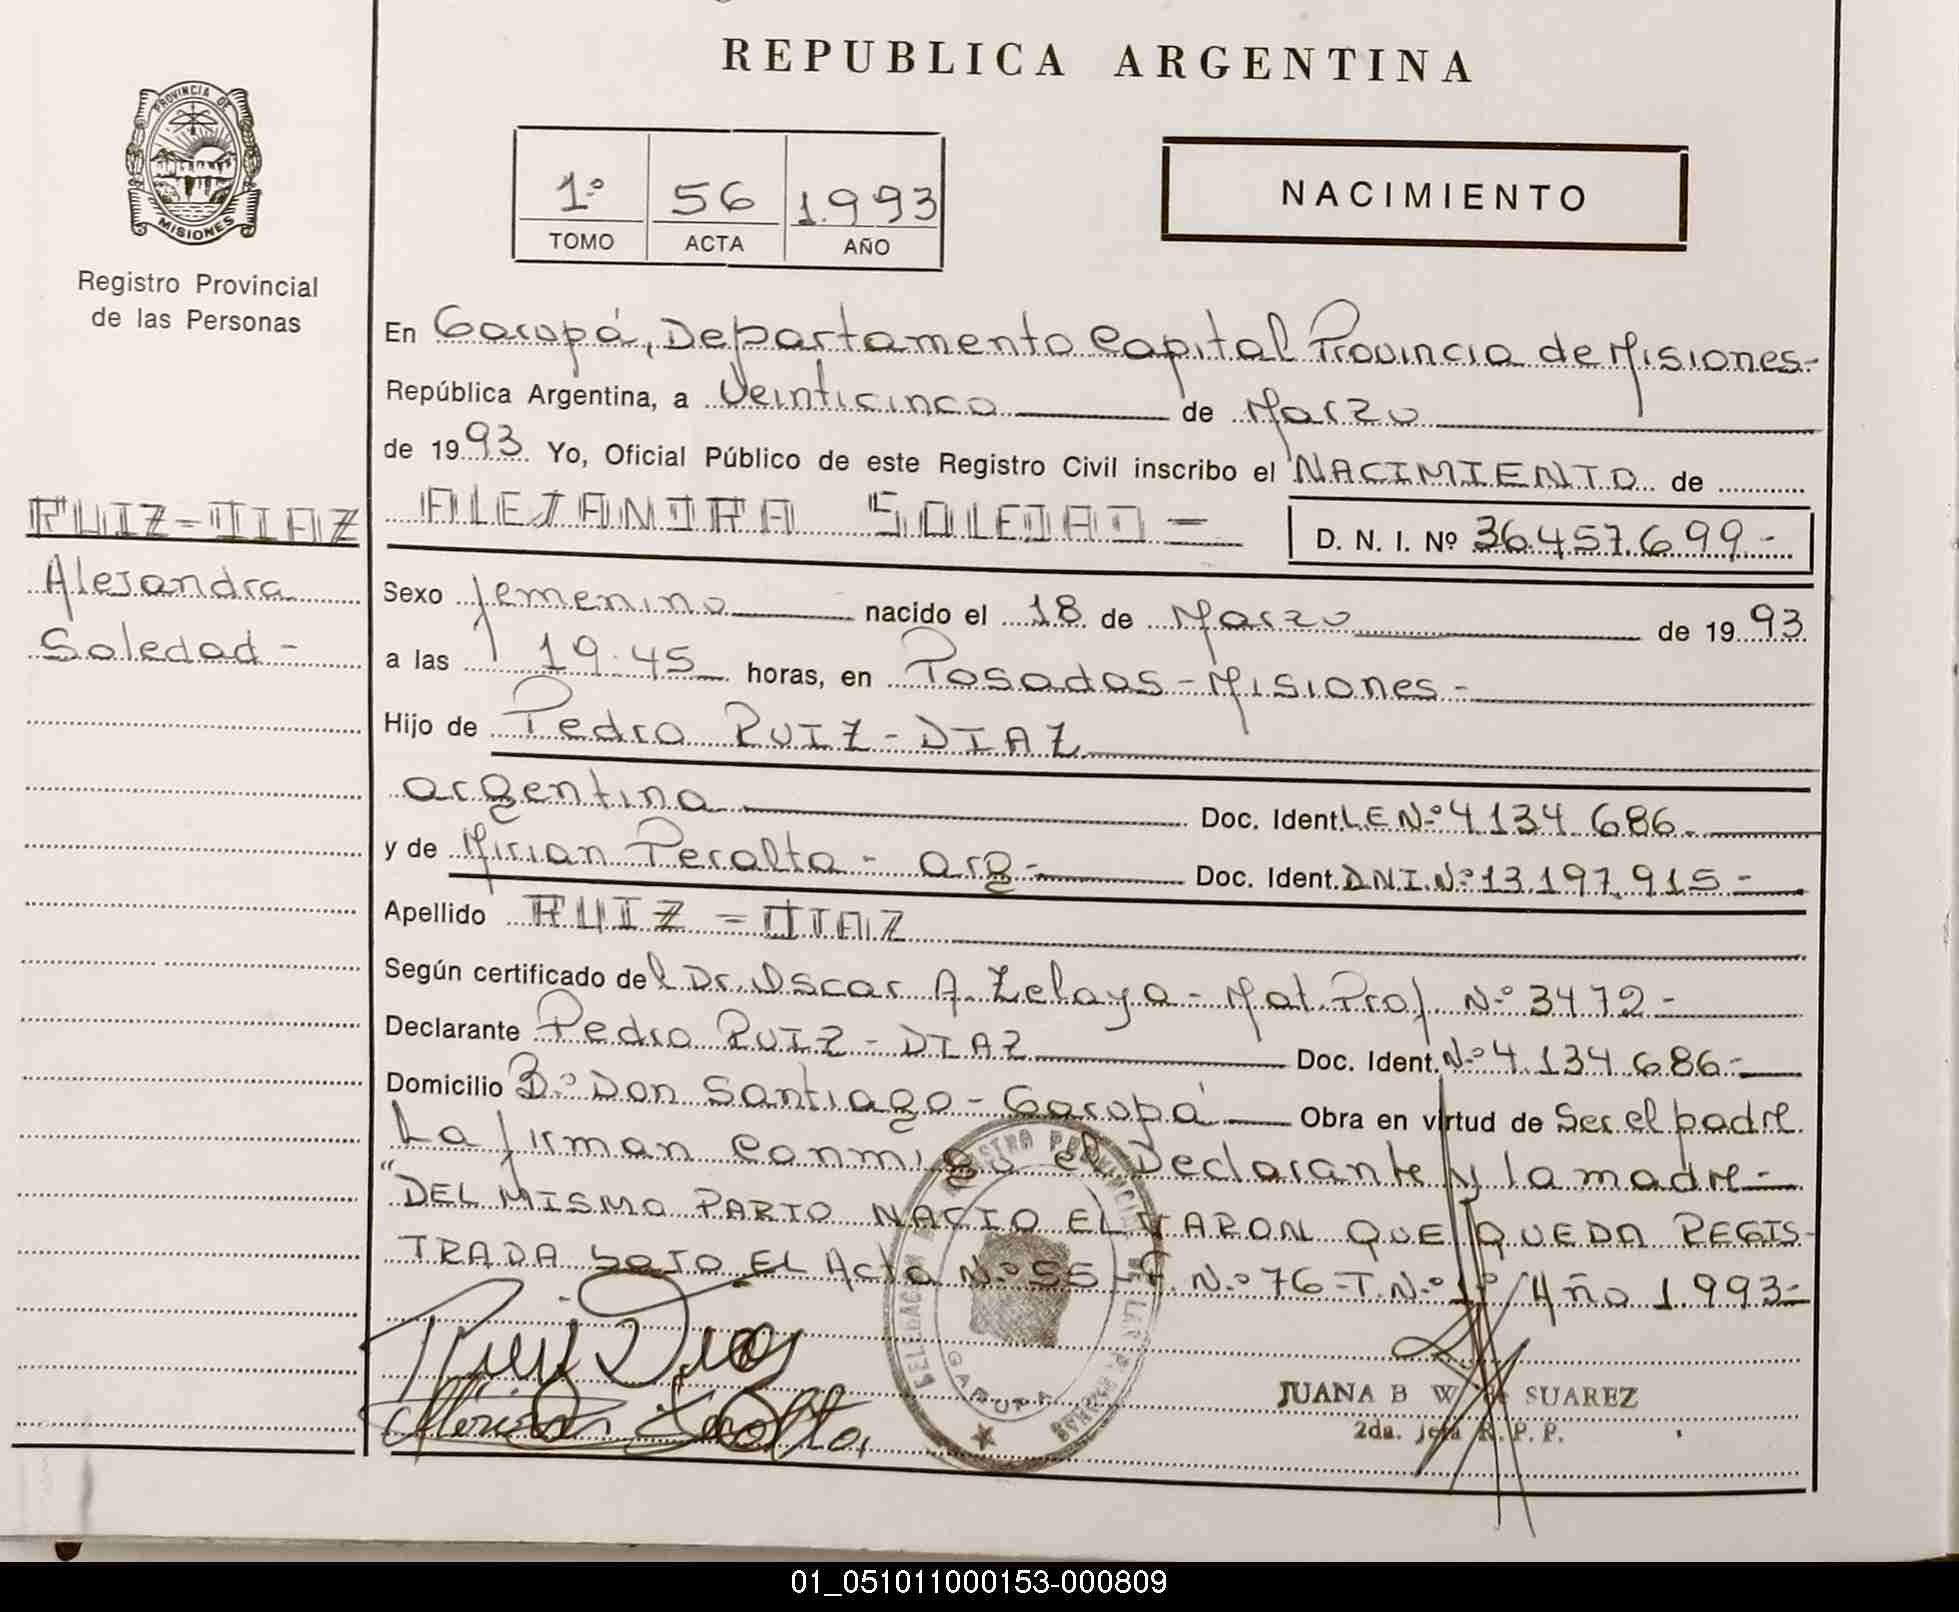 REPUBLICA ARGENTINA
PROVINCIA DE
MISIONES
Registro Provincial
de las Personas
1º 56 1.993
TOMO ACTA AÑO
NACIMIENTO
En Garupá, Departamento Capital Provincia de Misiones.-
República Argentina, a Veinticinco de Marzo
de 1993. Yo, Oficial Público de este Registro Civil inscribo el NACIMIENTO de
RUIZ-DIAZ
Alejandra
Soledad -
ALEJANDRA SOLEDAD = D. N. I. Nº 36.457.699.-
Sexo femenino nacido el 18 de Marzo de 1993
a las 19.45 horas, en Posadas - Misiones -
Hijo de Pedro RUIZ - DIAZ
argentino Doc. Ident. L E Nº 4.134.686.
y de Mirian Peralta - arg - Doc. Ident. D.N.I. Nº 13.197.915 -
Apellido RUIZ - DIAZ
Según certificado del Dr. Oscar A. Zelaya - Mat. Prof. Nº 3472 -
Declarante Pedro RUIZ - DIAZ Doc. Ident. Nº 4.134.686 -
Domicilio Bº Don Santiago - Garupá Obra en virtud de Ser el padre.
La firman conmigo el Declarante y la madre -
"DEL MISMO PARTO NACIO EL VARON QUE QUEDA REGIS-
TRADA bajo EL Acta Nº 55 - F. Nº 76 - T. Nº 1º / Año 1.993 -
Ruiz Diaz
Mirian Peralta
REGISTRO PROVINCIAL DE LAS PERSONAS
DELEGACION
GARUPA
JUANA B W de SUAREZ
2da. jefa R. P. P.
01_051011000153-000809